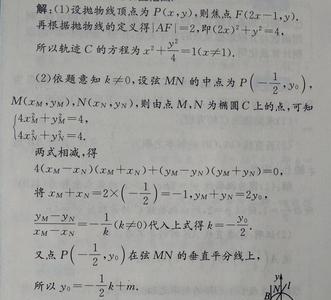 解:(1)设抛物线顶点为P(x,y),则焦点F(2x-1,y).
再根据抛物线的定义得|AF|=2,即(2x)²+y²=4,
所以轨迹C的方程为x²+y²/4=1(x≠1).
(2)依题意知k≠0,设弦MN的中点为P(-1/2,y₀),
M(x_M,y_M),N(x_N,y_N),则由点M,N为椭圆C上的点,可知
{4x²_M+y²_M=4,
4x²_N+y²_N=4.
两式相减,得
4(x_M-x_N)(x_M+x_N)+(y_M-y_N)(y_M+y_N)=0,
将x_M+x_N=2×(-1/2)=-1,y_M+y_N=2y₀,
(y_M-y_N)/(x_M-x_N)=-1/k(k≠0)代入上式得k=-y₀/2.
又点P(-1/2,y₀)在弦MN的垂直平分线上,
所以y₀=-1/2k+m.
y
B